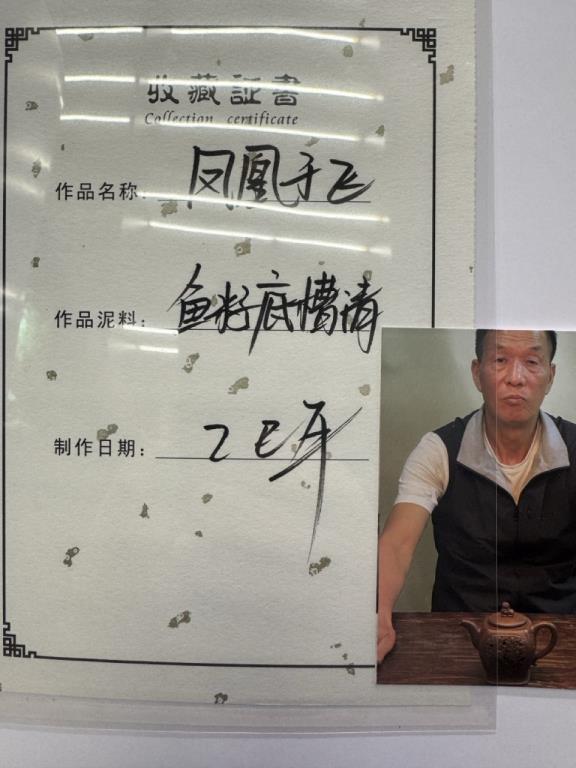 收藏証書
Collection certificate
作品名称：凤凰于飞
作品泥料：鱼籽底槽清
制作日期：乙巳年